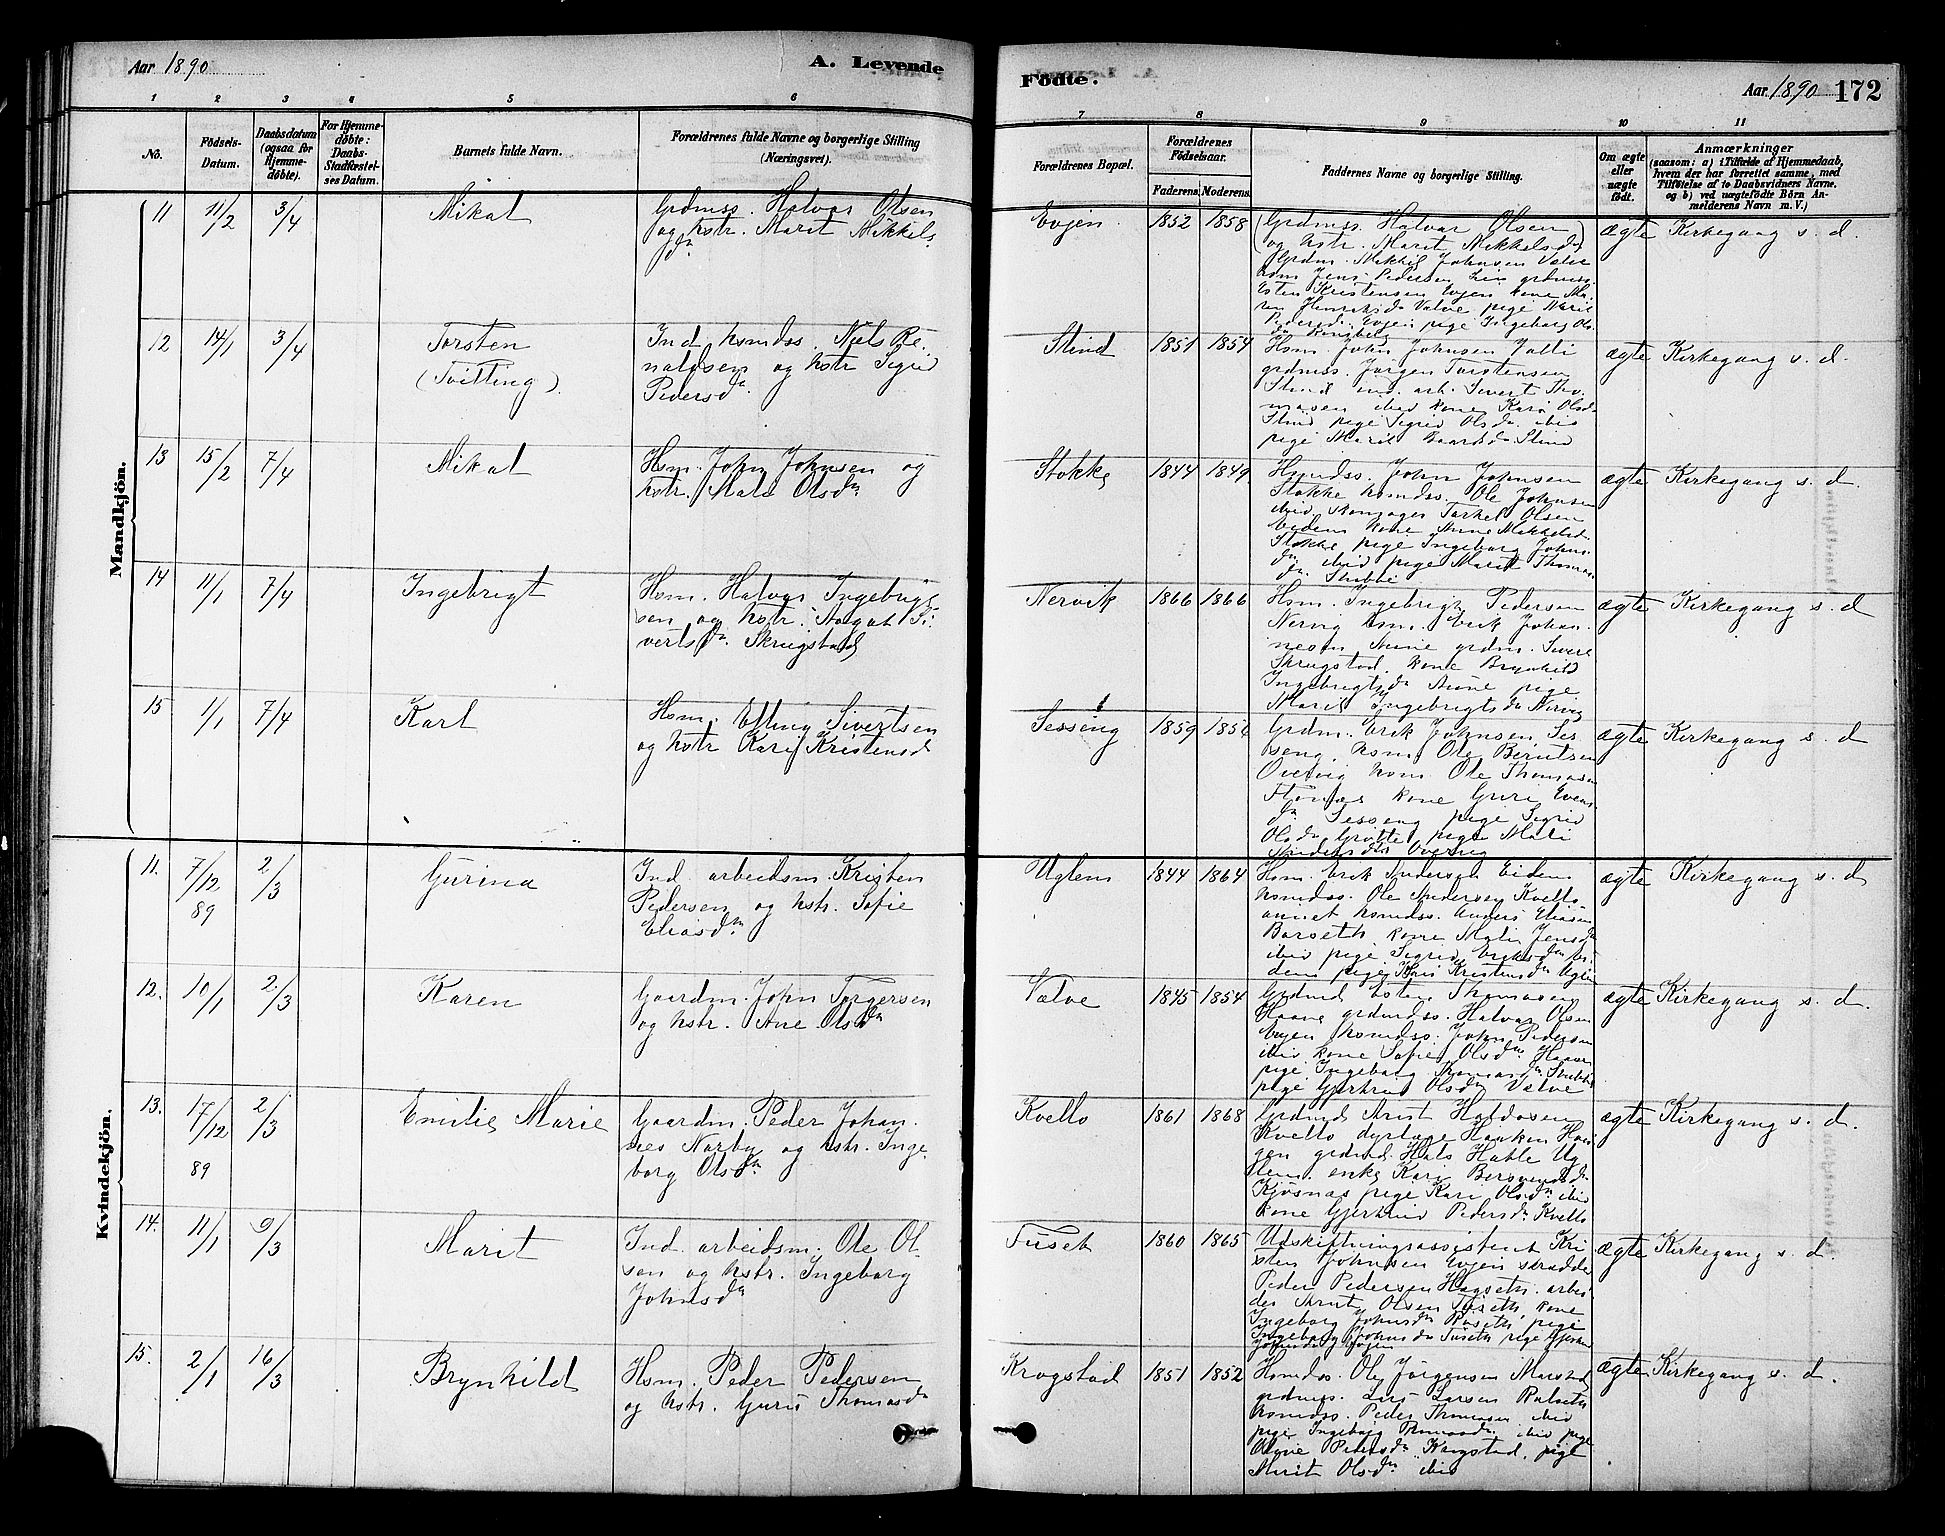 Aar 1890
A. Levende
Födte.
Aar 1890
172
1 2 3 4 5 6
7 8 9 10 11
No.
Födsels-
Datum.
Daabsdatum
(ogsaa for
Hjemme-
døbte).
For Hjemme-
døbte:
Daabs-
Stadfæstel-
ses Datum.
Barnets fulde Navn.
Forældrenes fulde Navne og borgerlige Stilling
(Næringsvei).
Forældrenes Bopæl.
Forældrenes
Födselsaar.
Faderens. Moderens.
Faddernes Navne og borgerlige Stilling.
Om ægte
eller
uægte
født.
Anmærkninger
(saasom: a) i Tilfælde af Hjemmedaab,
hvem der har forrettet samme, med
Tilføielse af to Daabsvidners Navne,
og b) ved uægtefødte Börn An-
melderens Navn m. V.)
Mandkjön.
11 11/2 3/4 Mikal
Grdmss. Halvar Olsen
og hstr. Marit Mikkels
da
Evjen 1852 1858
Grdmss. Halvar Olsen
og hstr. Marit Mikkelsda
Grdm. Mikkil Johnsen Valve
hsm Jens Pedersen Lien grdmss.
Esten Kristensen Evjen kone Ma-
ren Henriksda Valve pige Marit
Pedersda Evjen pige Ingeborg Ols-
da
ægte Kirkegang s. d.
12 14/1 3/4 Torsten
(Tvilling).
Ind. hsmdss. Nils Re-
naldsen og hstr Sigrid
Pedersda
Stind 1851 1854
Hsm. John Johnsen
grdmss. Jörgen Torstensen
Stind ind. arb. Sivert Tho-
masen ibid kone Kari Olsda
Stind pige Sigrid Olsda ibid
pige Marit Baardsda Stind
ægte Kirkegang s. d.
13 15/2 7/4 Mikal
Hsm. John Johnsen og
hstr. Mali Olsda
Stokke 1844 1849
Hsmdss. John Johnsen
Stokke hsmdss. Ole Johnsen
ibid. Torkel Olsen
kone Anne Mikkelsd.
Stokke pige Ingeborg Johns-
da ibid pige Marit Thomas-
da Stubbe
ægte Kirkegang s. d.
14 11/1 7/4 Ingebrigt
Hsm. Halvar Ingebrigt-
sen og hstr. Aagot Si-
vertsda Skrugstad
Nervik 1866 1866
Hsm. Ingebrigt Pedersen
Nervig hsm. Erik Johan-
nesen Aune grdm. Sivert
Skrugstad, kone Brynhild
Ingebrigtsda Aune pige
Marit Ingebrigtsda Nervig
ægte Kirkegang s. d
15 1/1 7/4 Karl
Hsm. Elling Sivertsen
og hstr Kari Kristensd
Sesseng 1859 1856
Grdm. Erik Johnsen Ses-
seng, hsm. Ole Berntsen
Overvig hsm. Ole Thomasen
kone Guri Evens-
da Sesseng pige Sigrid
Olsda Grötte pige Mali
Andersda Overvig
ægte Kirkegang s. d
Kvindekjön.
11. 7/12 89 2/3 Gurina
Ind. arbeidsm. Kristen
Pedersen og hstr. Sofie
Eliasda
Uglem 1844 1864
Hsm. Erik Andersen Eidem
hsmdss. Ole Andersen Kvello-
annet hsmdss. Anders Eliasen
Barseth kone Mali Jensda
ibid pige Sigrid Eriksda Ei-
dem pige Kari Kristensda Uglem
ægte Kirkegang s. d
12. 10/1 2/3 Karen
Gaardm. John Torgersen
og hstr. Ane Olsda
Valve 1845 1854
Grdmd Esten Thomasen
Haave grdmdss. Halvar Olsen
Evjen hsmdss. John Pedersen
ibid kone Sofie Olsda Haave
pige Ingeborg Thomasda Stubbe
pige Gjertrud Olsda Valve
ægte Kirkegang s. d.
13. 17/12 89 2/3 Emilie Marie
Gaardm. Peder Johan-
nes Narby og hstr. Inge-
borg Olsda
Kvello 1861 1868
Grdmd Arnt Haldosen
Kvello dyrlæge Haaken Hau-
gen grdmd Hals Hable Ug-
lem enke Kari Bersvendsda
Kjøsnæs pige Kari Olsda ibid
kone Gjertrud Pedersda Kvello
ægte Kirkegang s. d.
14. 11/1 9/3 Marit
Ind. arbeidsm. Ole Ol-
sen og hstr. Ingeborg
Johnsda
Tuset 1860 1865
Udskiftningsassistent Kri-
sten Johnsen Evjen skrædder
Peder Pedersen Hagseth arbei-
der Arnt Olsen Tuseth kone
Ingeborg Johnsda Roseth pige
Ingeborg Johnsda Tuseth pige Gjertrud
Johnsda Evjen
ægte Kirkegang s. d.
15. 2/1 16/3 Brynhild
Hsm. Peder Pedersen
og hstr. Guru Thomasda
Krogstad 1851 1852
Hsmdss. Ole Jørgensen
grdmss. Lars Larsen Rolseth
hsmdss. Peder Thomasen ibid
pige Ingeborg Thomasda ibid pige
Oline Pedersda Krogstad, pige
Marit Olsda ibid
ægte Kirkegang s. d.